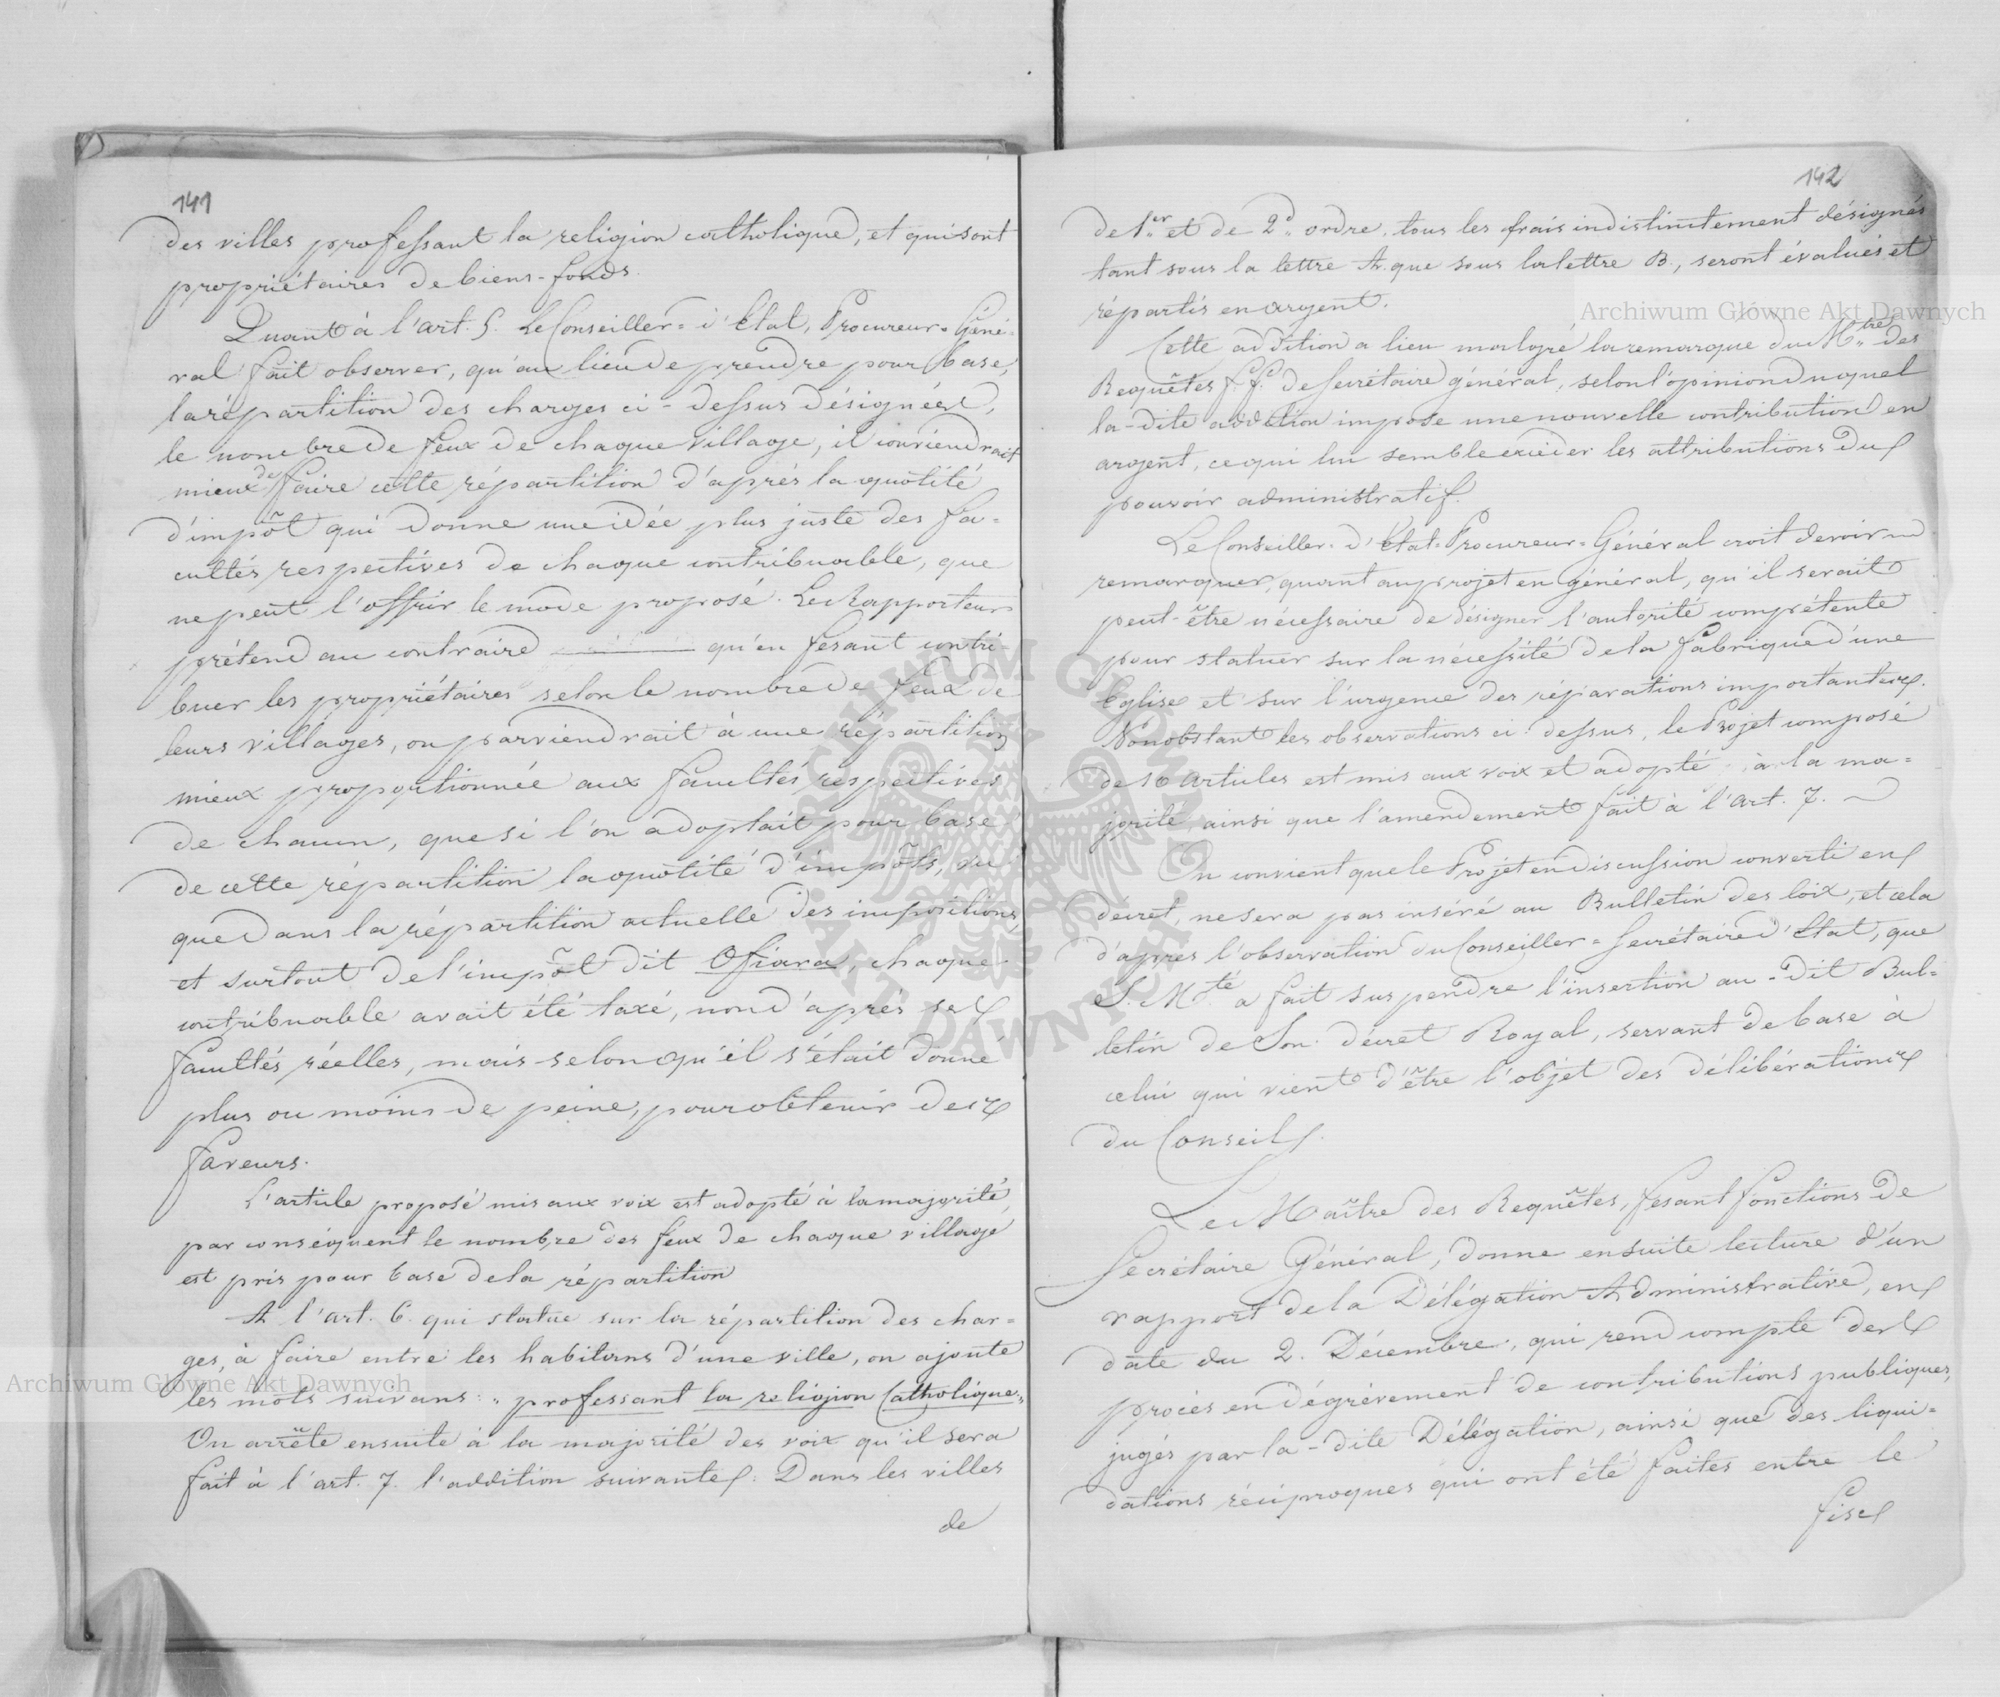 141
des villes professant la religion catholique, et qui sont
propriétaires de biens-fonds.
Quant à l'art. 5. Le Conseiller = d'Etat, Procureur = Géné-
ral fait observer, qu'au lieu de prendre pour base,
la répartition des charges ci-dessus désignées,
le nombre de feux de chaque village, il conviendrait
mieux de faire cette répartition d'après la quotité
d'impôt qui donne une idée plus juste des fa=
cultés respectives de chaque contribuable, que
ne peut l'offrir le mode proposé. Le Rapporteur
prétend au contraire qu'en fesant contri-
buer les propriétaires selon le nombre de feux de
leurs villages, on parviendrait à une répartition
mieux proportionnée aux facultés respectives
de chacun, que si l'on adoptait pour base
de cette répartition la quotité d'impôts, vu
que dans la répartition actuelle des impositions,
et surtout de l'impôt dit Ofiara, chaque
contribuable avait été taxé, non d'après ses
facultés réelles, mais selon qu'il s'était donné
plus ou moins de peine, pour obtenir des
faveurs.
L'article proposé mis aux voix est adopté à la majorité,
par conséquent le nombre des feux de chaque village
est pris pour base de la répartition
A l'art. 6. qui statue sur la répartition des char=
ges, à faire entre les habitans d'une ville, on ajoute
les mots suivans: „professant la religion Catholique„
On arrête ensuite à la majorité des voix qu'il sera
fait à l'art. 7. l'addition suivante: Dans les villes
de
142
de 1er et de 2d ordre, tous les frais indistinctement désignés
tant sous la lettre A. que sous la lettre B., seront évalués et
répartis en argent.
Cette addition a lieu malgré la remarque du Mtre des
Requêtes f.f. de Secrétaire général, selon l'opinion duquel
la-dite addition impose une nouvelle contribution en
argent, ce qui lui semble excéder les attributions du
pouvoir administratif.
Le Conseiller-d'Etat-Procureur-Général croit devoir
remarquer, quant au projet en général, qu'il serait
peut-être nécessaire de désigner l'autorité compétente
pour statuer sur la nécessité de la fabrique d'une
Eglise et sur l'urgence des réparations importantes.
Nonobstant les observations ci-dessus, le Projet composé
de 10 articles est mis aux voix et adopté à la ma=
jorité, ainsi que l'amendement fait à l'art. 7.
On convient que le Projet en discussion converti en
decret, ne sera pas inséré au Bulletin des loix, et cela
d'après l'observation du Conseiller = Secrétaire d'Etat, que
S. Mté a fait suspendre l'insertion au-dit Bul=
letin de Son décret Royal, servant de base à
celui qui vient d'être l'objet des délibérations
du Conseil.
Le Maître des Requêtes, fesant fonctions de
Secrétaire Général, donne ensuite lecture d'un
rapport de la Délégation Administrative, en
date du 2. Décembre, qui rend compte des
procès en dégrèvement de contributions publiques,
jugés par la-dite Délégation, ainsi que des liqui=
dations réciproques qui ont été faites entre le
fisc
Archiwum Główne Akt Dawnych
Archiwum Główne Akt Dawnych
ARCHIWUM GŁÓWNE AKT DAWNYCH